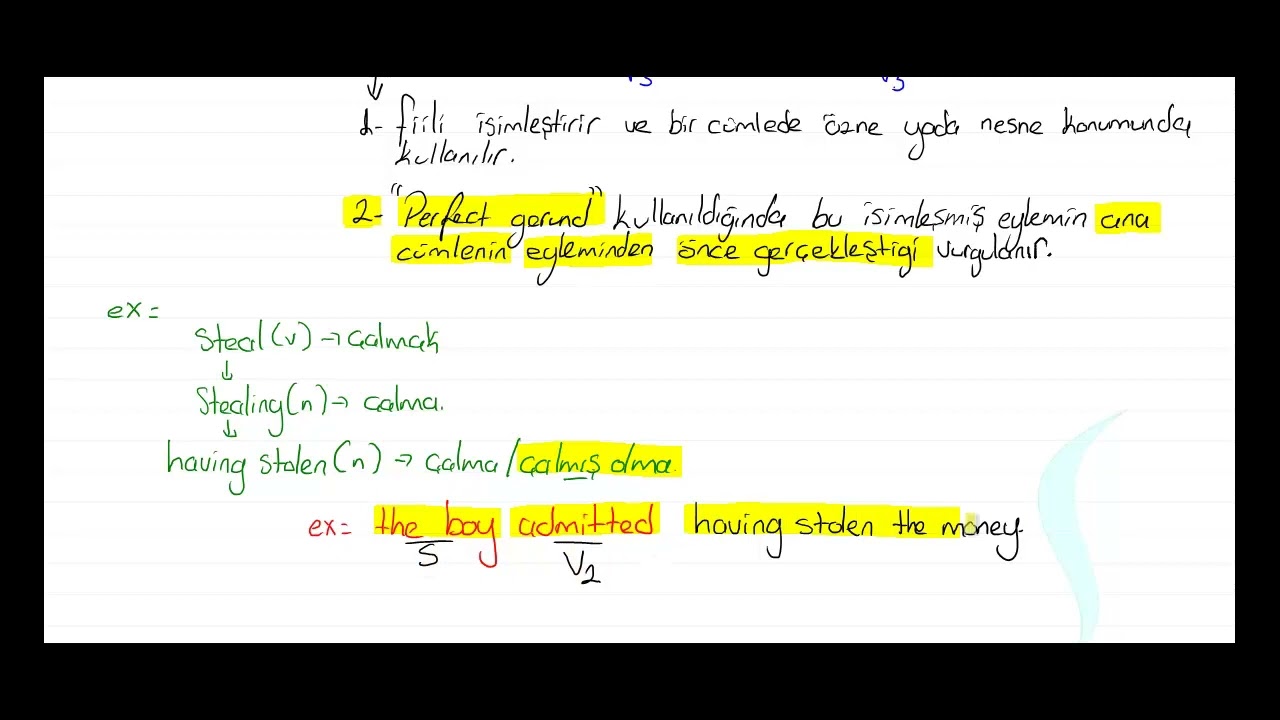 V3 V3
1- fiili isimleştirir ve bir cümlede özne yada nesne konumunda
kullanılır.
2- "Perfect gerund" kullanıldığında bu isimleşmiş eylemin ana
cümlenin eyleminden önce gerçekleştiği vurgulanır.
ex=
Steal(v) → çalmak
↓
Stealing(n) → çalma.
↓
having stolen(n) → çalma/çalmış olma.
ex= the boy admitted having stolen the money.
S V2